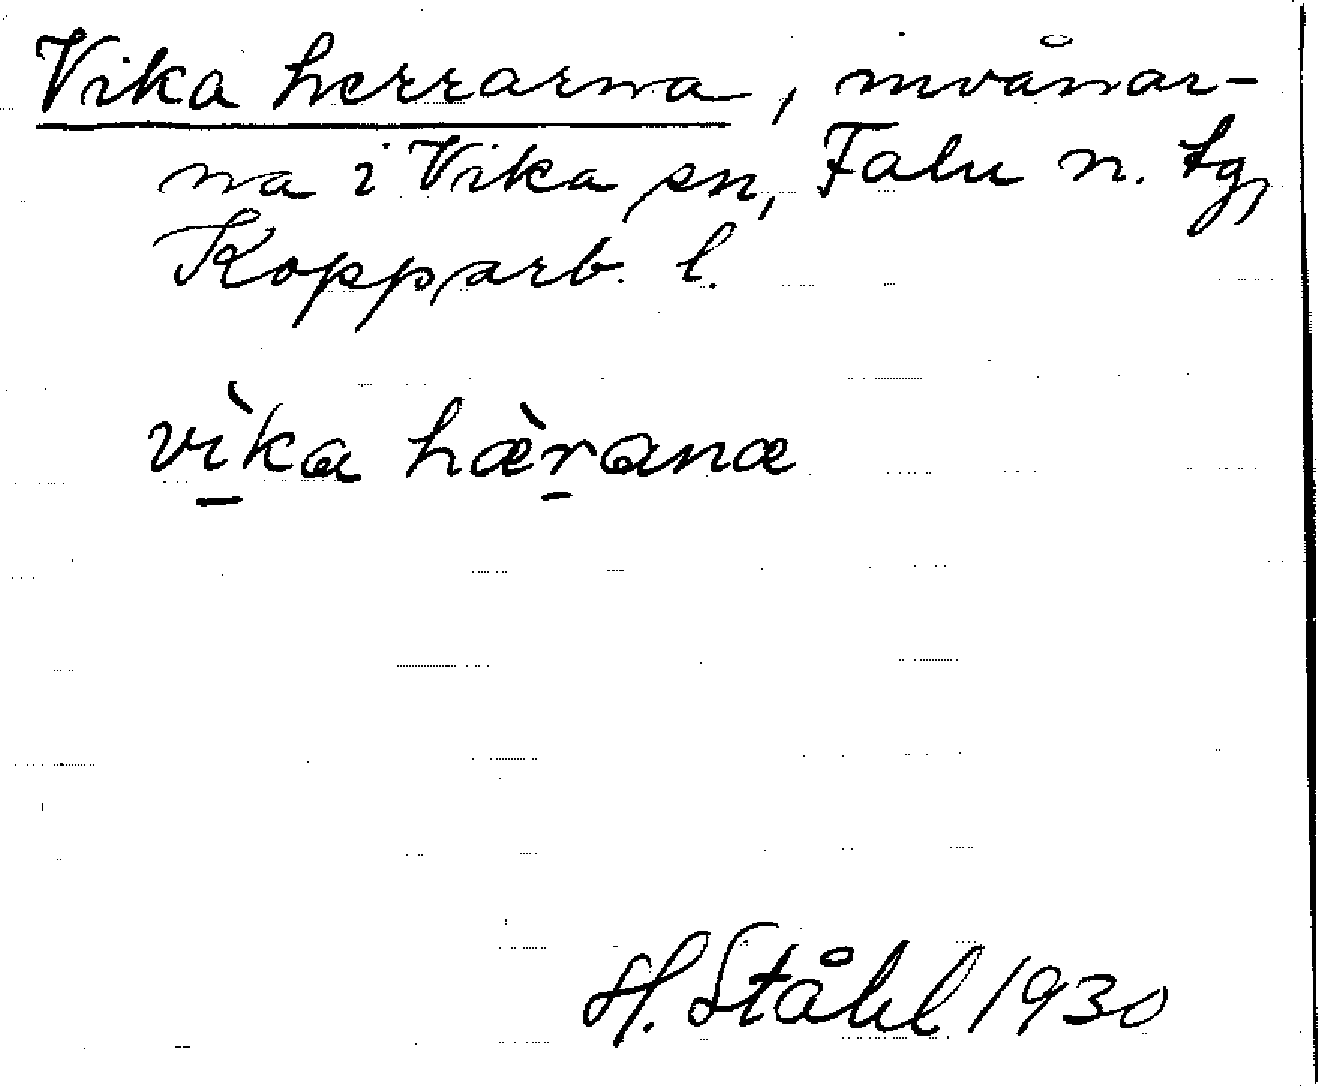 Vika herrarna, invånar-
na i Vika sn, Falu n. tg,
Kopparb. l.
vìka hæ̀ranæ
H. Ståhl 1930